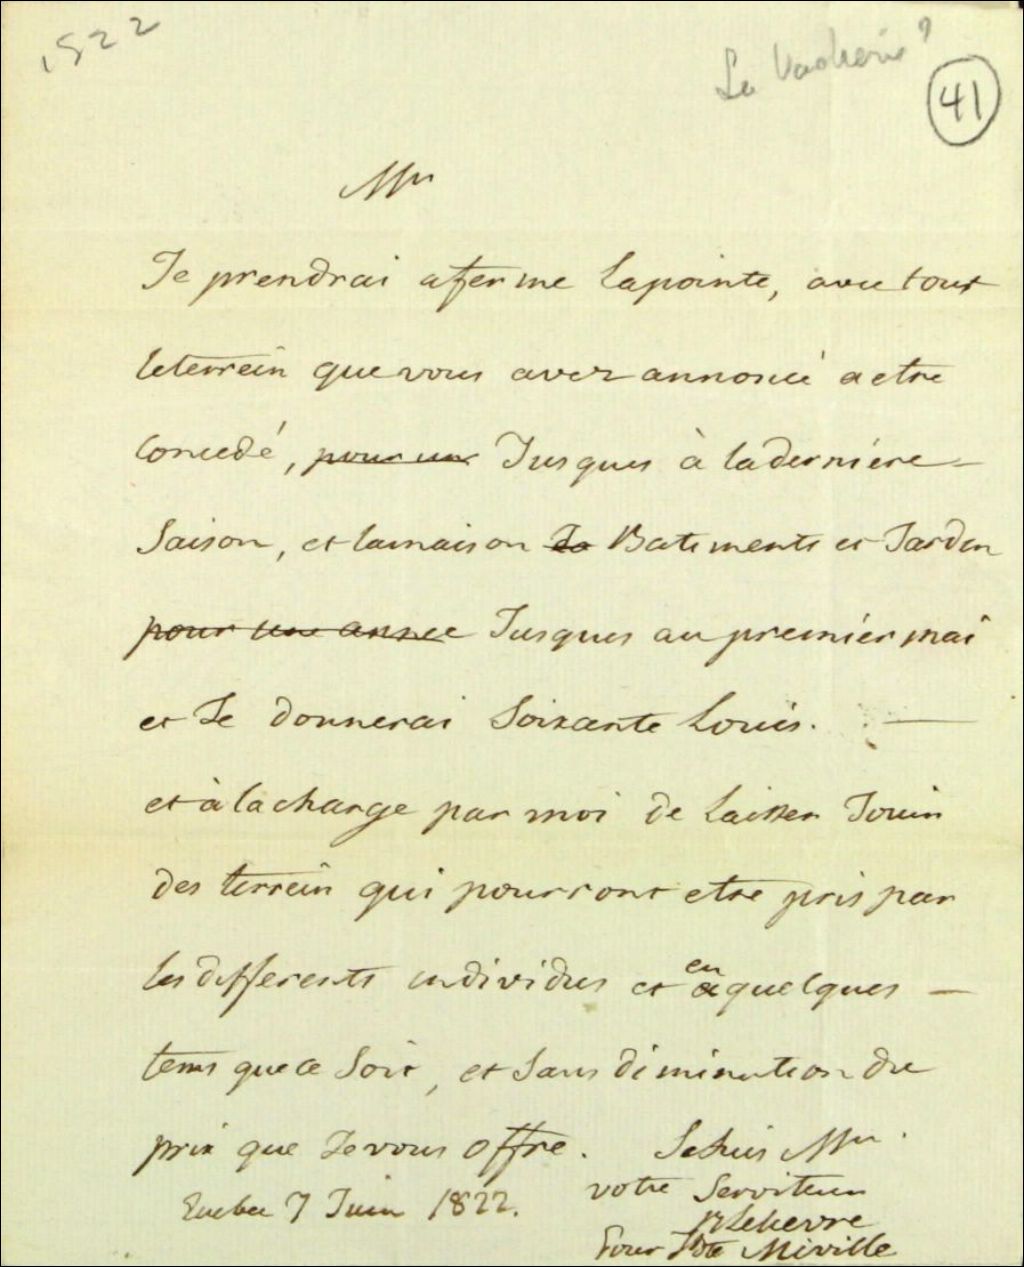 1822
La Vacherie?
41
Mr
Je prendrai aferme lapointe, avec tout
leterrein que vous avez annoncé a etre
Concedé, pour un Jusques à laderniere
Saison, et lamaison Batiments et Jardin
pour une annee Jusques au premiér mai
et Je donnerai Soixante Louis.
et à lacharge par moi de laisser Jouir
des terrein qui pourront etre pris par
les differents individus et en quelques
tems que ce Soit, et Sans diminution du
prix que Je vous offre. Je Suis Mr.
votre Serviteur
Quebec 7 Juin 1822.
Pour Miville